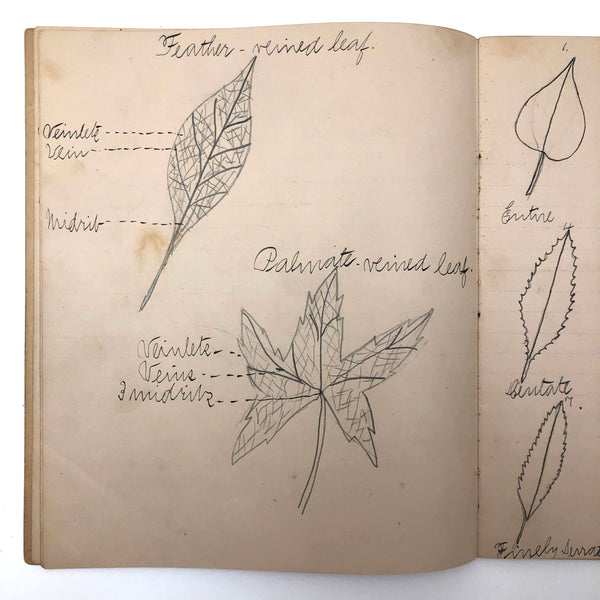 Feather-veined leaf.
Veinlets
Vein
Midrib
Palmate-veined leaf.
Veinlets
Veins
midribs
1.
Entire
4
Dentate
7
Finely Serrat